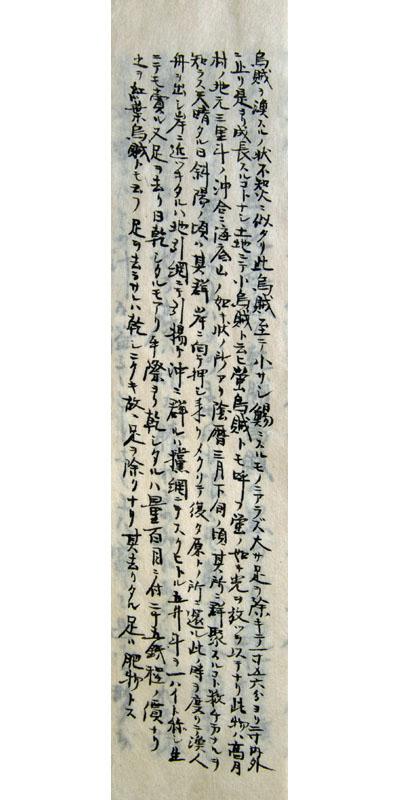 烏賊ヲ漁スルノ状不知火ニ似タリ此烏賊至テ小サシ鯣ニスルモノニアラズ大サ足ヲ除キテ一寸五六分ヨリ二寸内外
ニ止リ是ヨリ成長スルコトナシ土地ニテ小烏賊ト云ヒ螢烏賊トモ呼フ螢ノ如キ光ヲ放ツヲ以テナリ此物ハ高月
村ノ地元三里斗ノ沖合ニ海底山ノ如キ状ノ所アリ陰暦三月下旬ノ頃其所ニ群聚スルコト数ケアルヲ
知ラス天晴タル日斜陽ノ頃ハ其群岸ニ向テ押シ来リイクリテ復タ原トノ所ニ還ル此ノ時ヲ度リテ漁人
舟ヲ出シ岸ニ近ツキタルハ地引網ニテ引揚ケ沖ニ群ルハ攩網ニテスクヒトル五升斗ヲ一ハイト称シ生
ニテモ賣ル又足ヲ去リ日乾シタルモアリ手際ヨク乾シタルハ量百目ニ付二十五銭程ノ價ナリ
之ヲ紅葉烏賊トモ云フ足ヲ去ルハ乾シニクキ故ニ足ヲ除クナリ其去リタル足ハ肥物トス